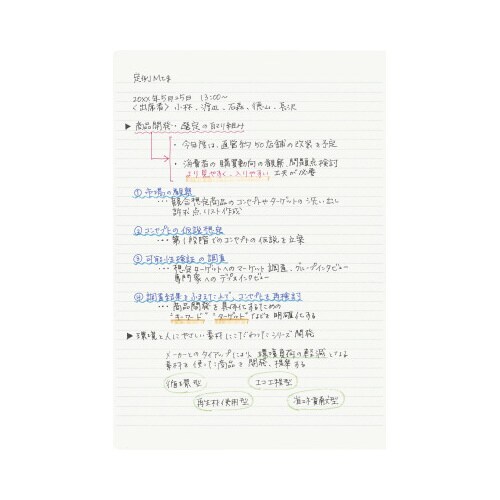 定例Mtg
20XX年5月25日 13:00〜
〈出席者〉小林、渡辺、石森、横山、長沢
▶商品開発・選定の取り組み
・今年度は、直営 約50店舗の改善を予定
・消費者の購買動向の観察、問題点検討
より見やすく、入りやすい 工夫が必要
①市場の観察
・・・競合想定商品のコンセプトやターゲットの洗い出し
訴求点リスト作成
②コンセプトの仮説想定
・・・第1段階でのコンセプトの仮説を立案
③可能性検証の調査
・・・想定ターゲットへのマーケット調査、グループインタビュー
専門家へのデプスインタビュー
④調査結果をふまえた上で、コンセプトを再検討
・・・商品開発を具体化するための
"キーワード" "ターゲット" などを明確化する
▶環境と人にやさしい素材にこだわったシリーズ開発
メーカーとのタイアップにより、環境負荷の軽減となる
素材を使った商品を開発、提案する
循環型
エコ工程型
再生材使用型
省エネ貢献型